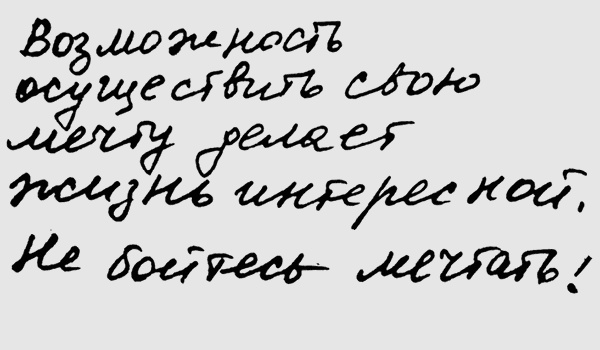 Возможность
осуществить свою
мечту делает
жизнь интересной.
Не бойтесь мечтать!